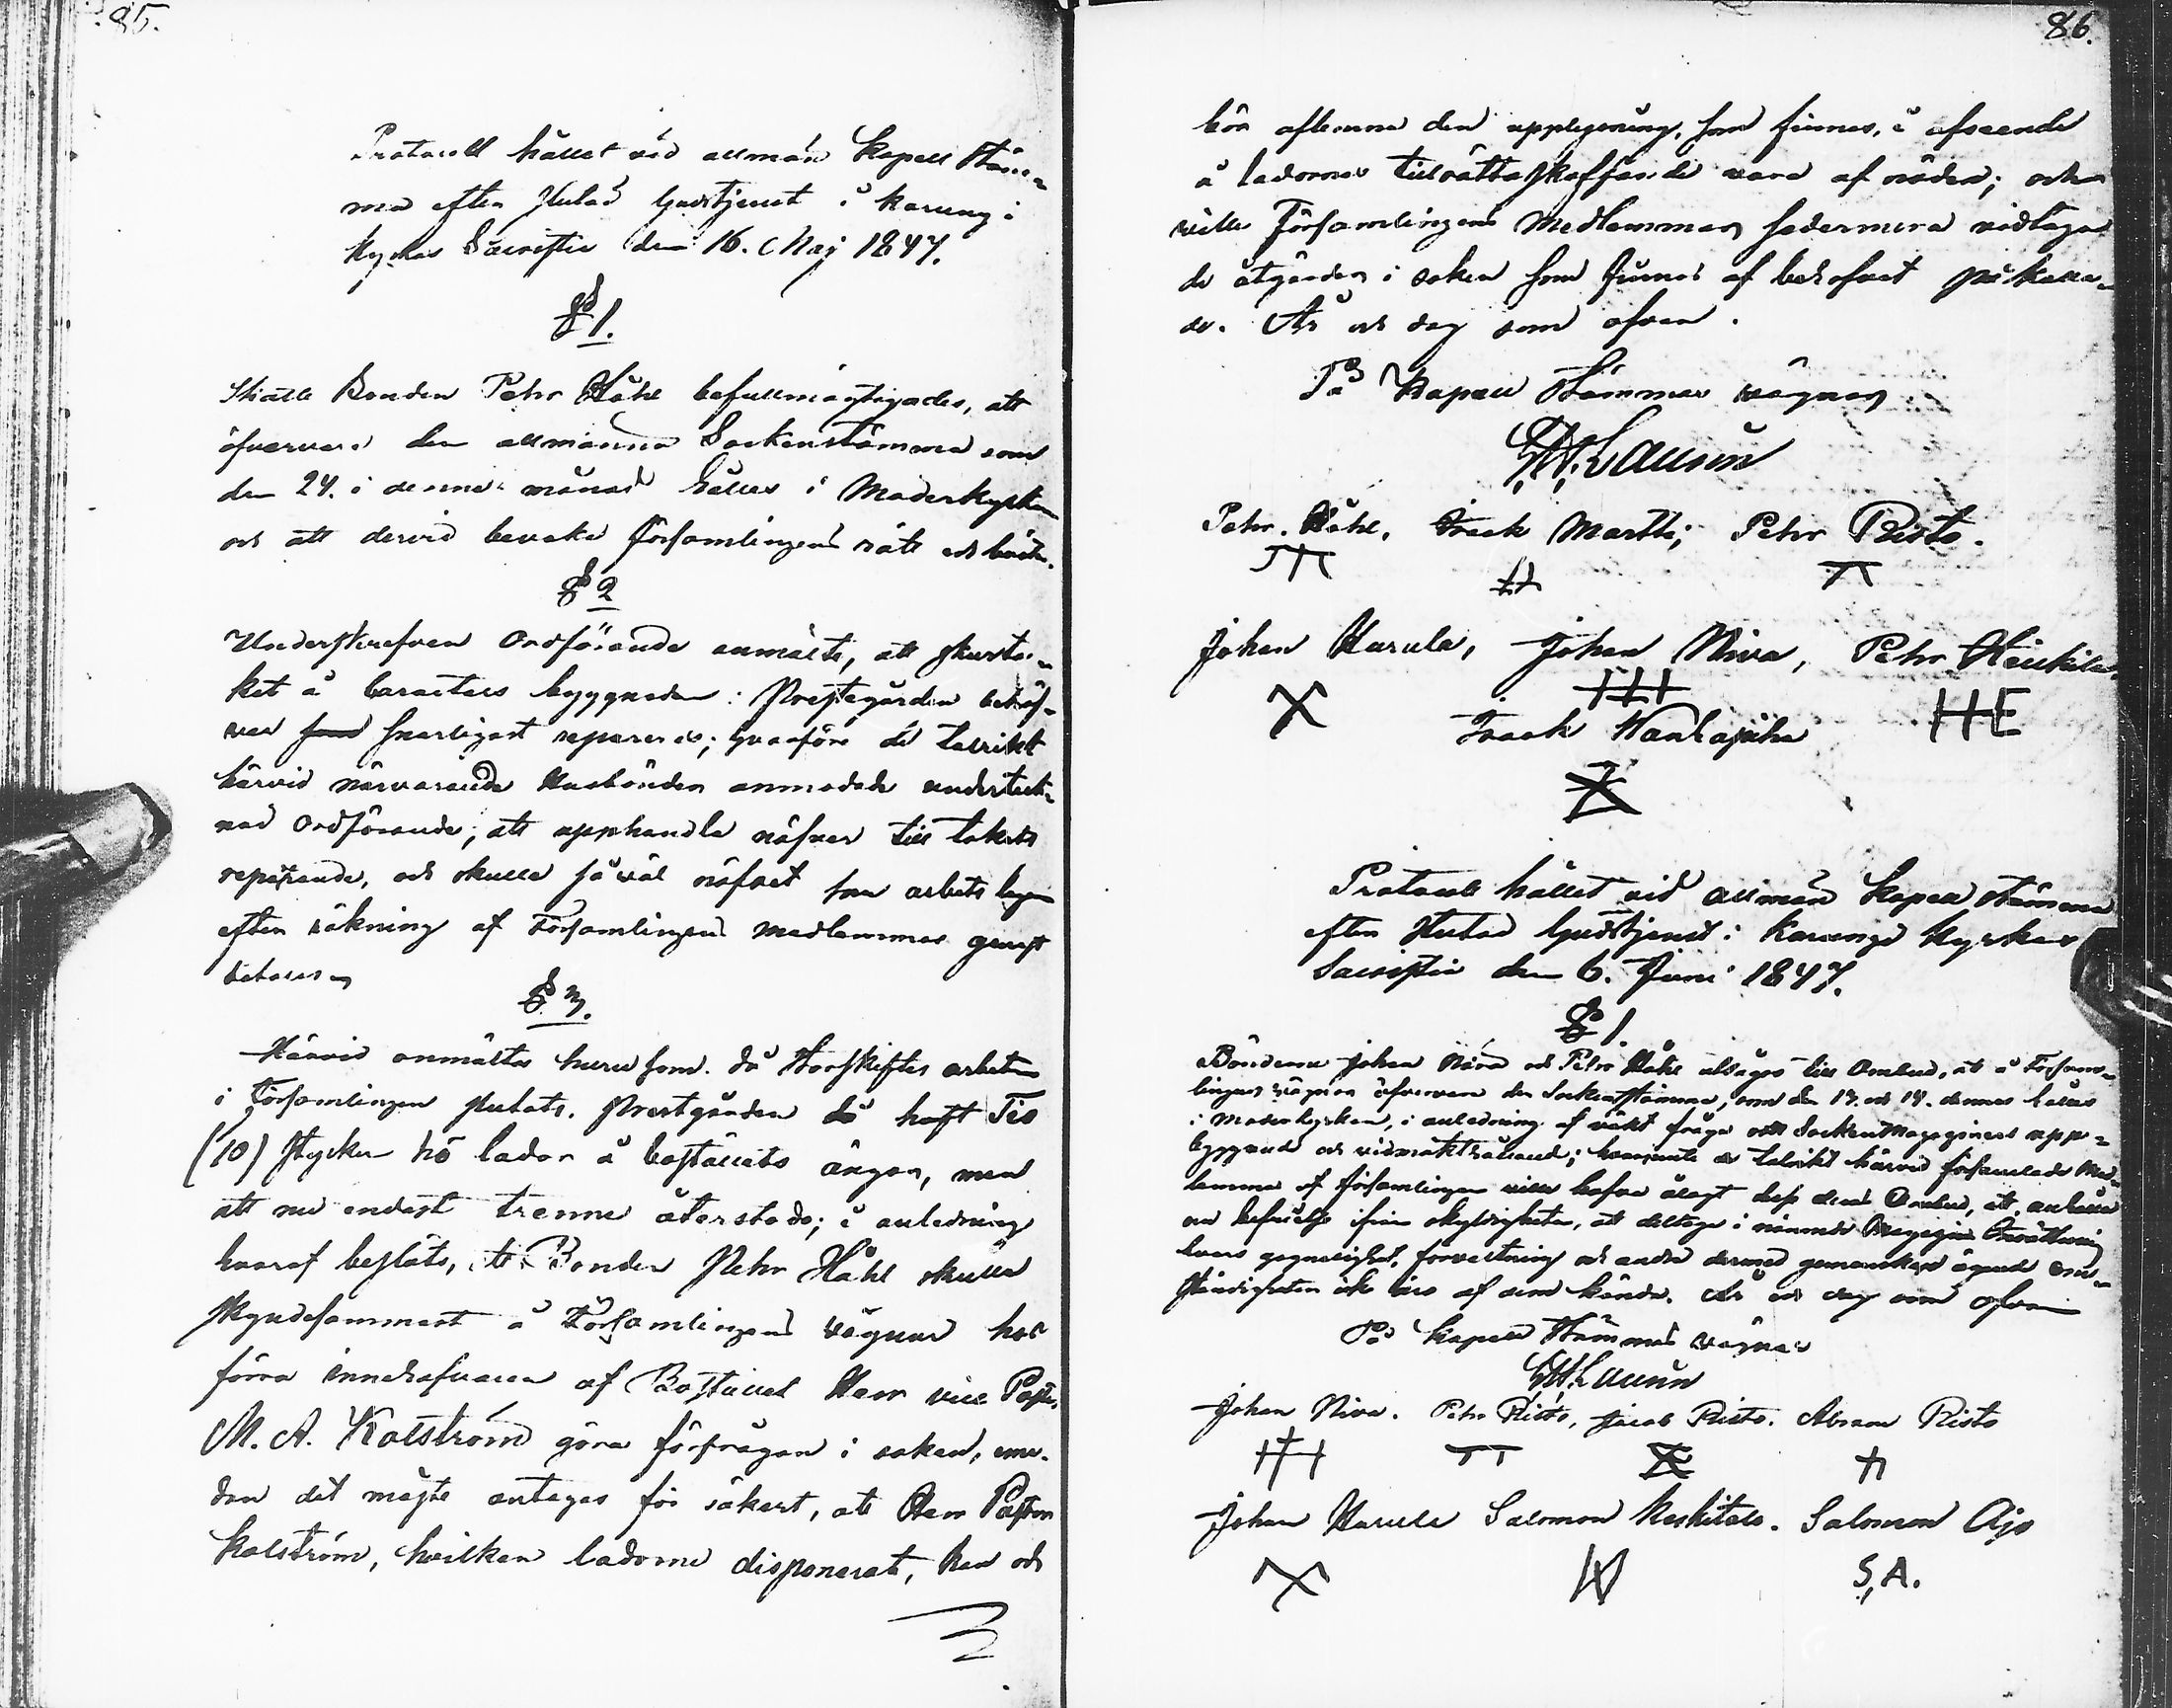 85.
Protocoll hållet vid allmän Kapell Stäm-
ma efter slutad Gudstjenst i Karungi
Kyrkas Sacristie den 16. Maj 1847.
§ 1.
Skatte Bonden Pehr Håhl befullmägtigades, att
öfvervara den allmänna Sockenstämma som
den 24. i denne månad hålles i Moderkyrkan
och att dervid bevaka Församlingens rätt och bästa.
§ 2
Underskrefven Ordförande anmälte, att
ket å byggnaden i Prestegården behöf-
ver snarligast repareras; hvarföre de talrikt
härvid närvarande Husbönder anmodade underteck-
nad Ordförande, att upphandla näfver till takets
reparande, och skulle så väl näfret som arbets
efter räkning af Församlingens medlemmar genast
betalas
§ 3.
Härvid anmältes huru som då Storskiftes arbeten
i Församlingen slutats, Prestgården då haft Tio
(10) stycken hö lador å boställets ängar, men
att nu endast trenne återstodo; i anledning
hvaraf beslöts, att Bonden Pehr Håhl skulle
skyndesammast å Församlingens vägnar hos
förra innehafvaren af Bostället Herr vice Pastor
M. A. Kolström göra förfrågan i saken, eme-
dan det måste antagas för säkert, att Herr Pastor
Kolström, hvilken ladorne disponerat, kan och
86.
bör aflemna den upplysning, som finnes, i afseende
å ladornes tillrättaskaffande vara af nöden; och
ville Församlingens Medlemmar sedermera vidtaga
de åtgärder i saken som finnes af behofvet påkalla-
de. År och dag som ofvan.
På Kapell Stämmas vägnar
Pehr Håhl, Isack Martti, Pehr Risto.
Johan Karula, Johan Niva, Pehr Heikila
Isack Wanhapiha
Protocoll hållet vid allmän Kapell stämma
efter slutad Gudstjenst i Karungi Kyrkas
Sacristie den 6. Juni 1847.
§ 1.
Bönderne Johan Niva och Pehr Håhl utsågos till Ombud, att å Försam-
lingens vägnar öfvervara den Sockenstämma, som den 13. och 14. dennes hålles
i Moderkyrkan, i anledning af väkt fråga om Sockenmagaziners upp-
byggande och vidmakthållande; hvarjemte de talrikt härvid församlade Med-
lemmar af församlingen ville hafva ålagt dess Ombud, att anhålla
om befrielse ifrån skyldigheten, att deltaga i nämnde Magazins Inrättning
hvars gagnelighet, förvaltning och andra dermed gemenskap ägande om-
ständigheter icke äro af dem kända. År och dag som ofvan
På Kapell Stämmas vägnar
Johan Niva. Pehr Risto, Jacob Risto. Abram Risto
Johan Karula Salomon Keskitalo. Salomon Ajo
S, A.